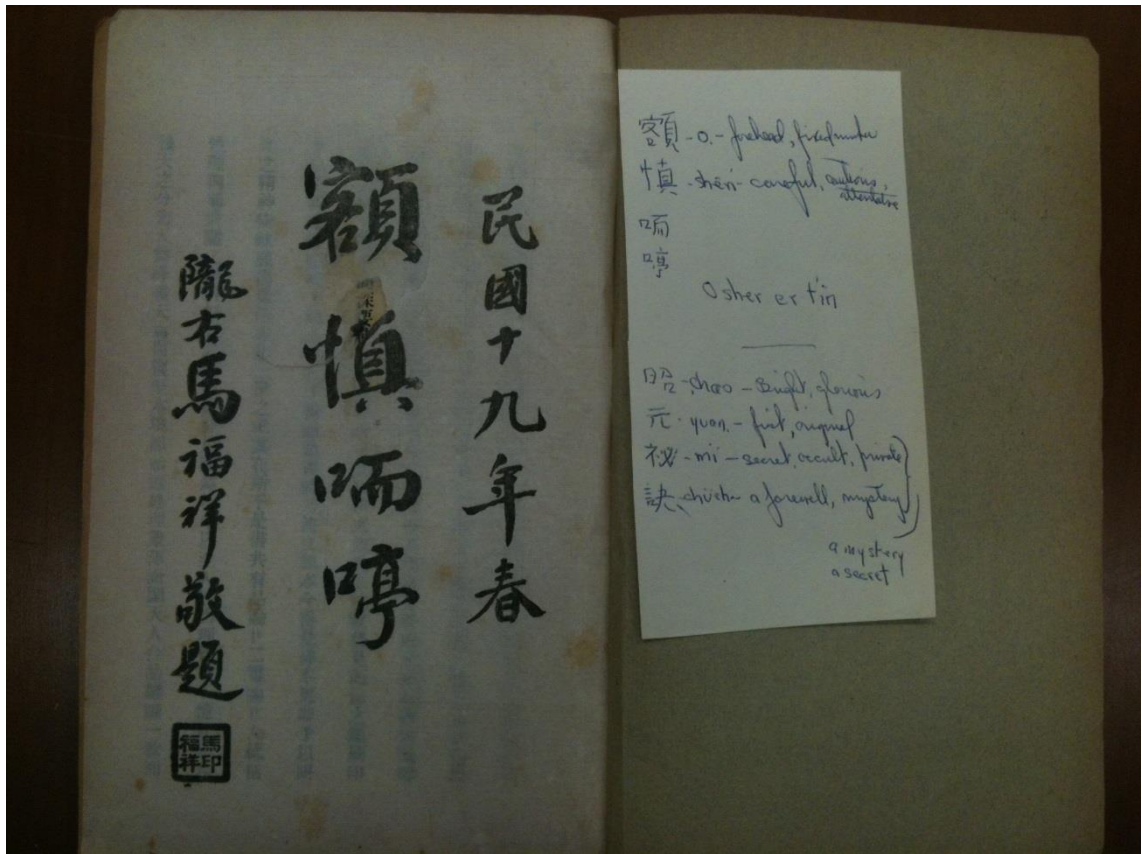 民國十九年春
額慎
隴右馬福祥敬題
馬印
福祥
額 - o. - forehead, fixed number
慎 - shên - careful, cautious,
attentive
Osher er tin
昭 - chao - bright, glorious
元 - yuan - first, original
祕 - mi - secret, occult, private
訣 - chüeh - a farewell, mystery
a mystery
a secret